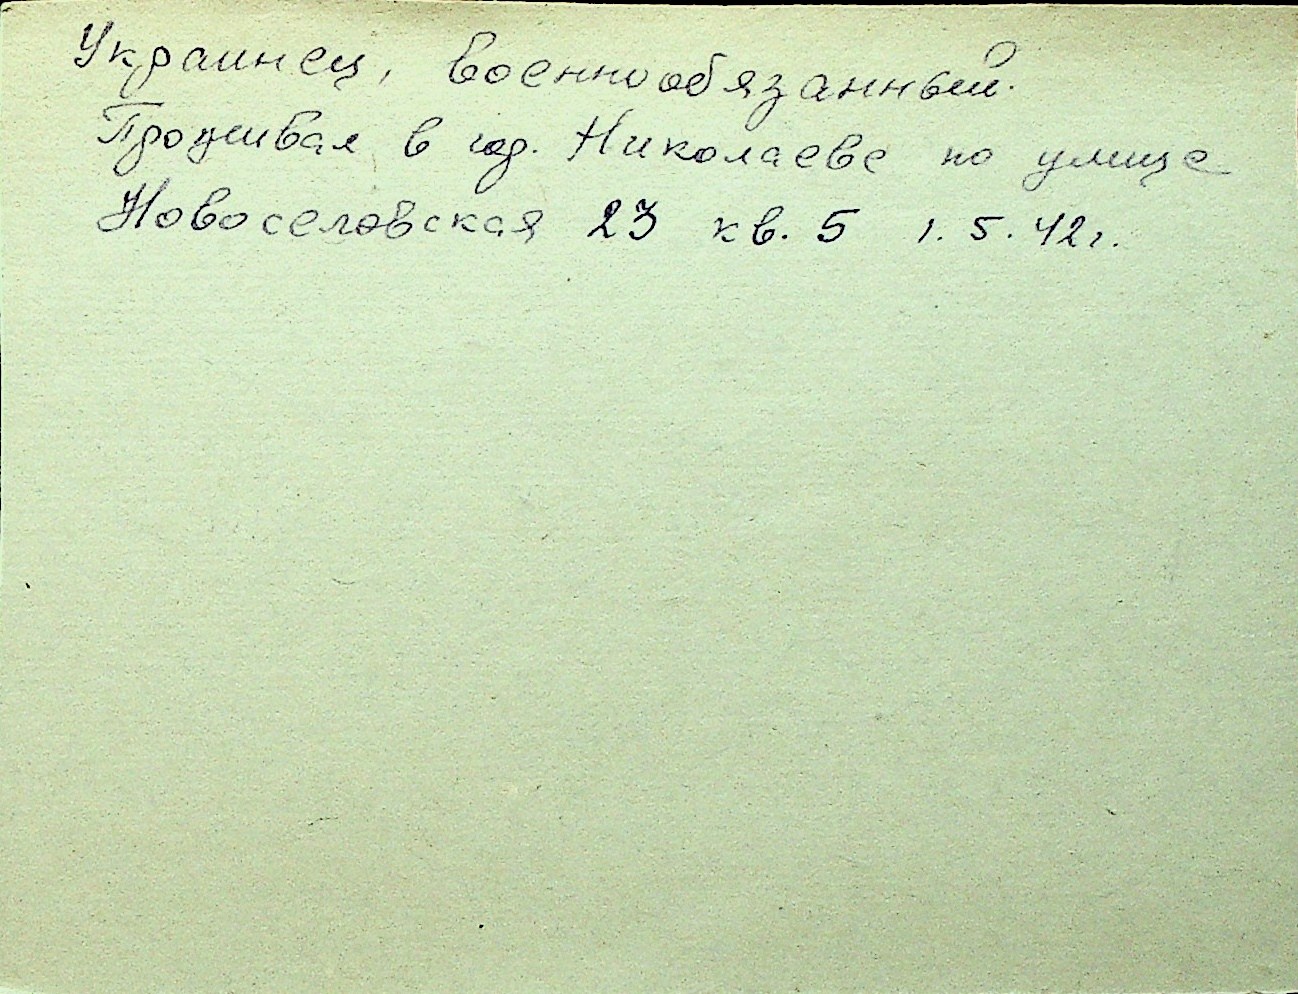 Украинец, военнообязанный.
Проживал в гор. Николаеве по улице
Новоселовская 23 кв. 5 1.5.42г.